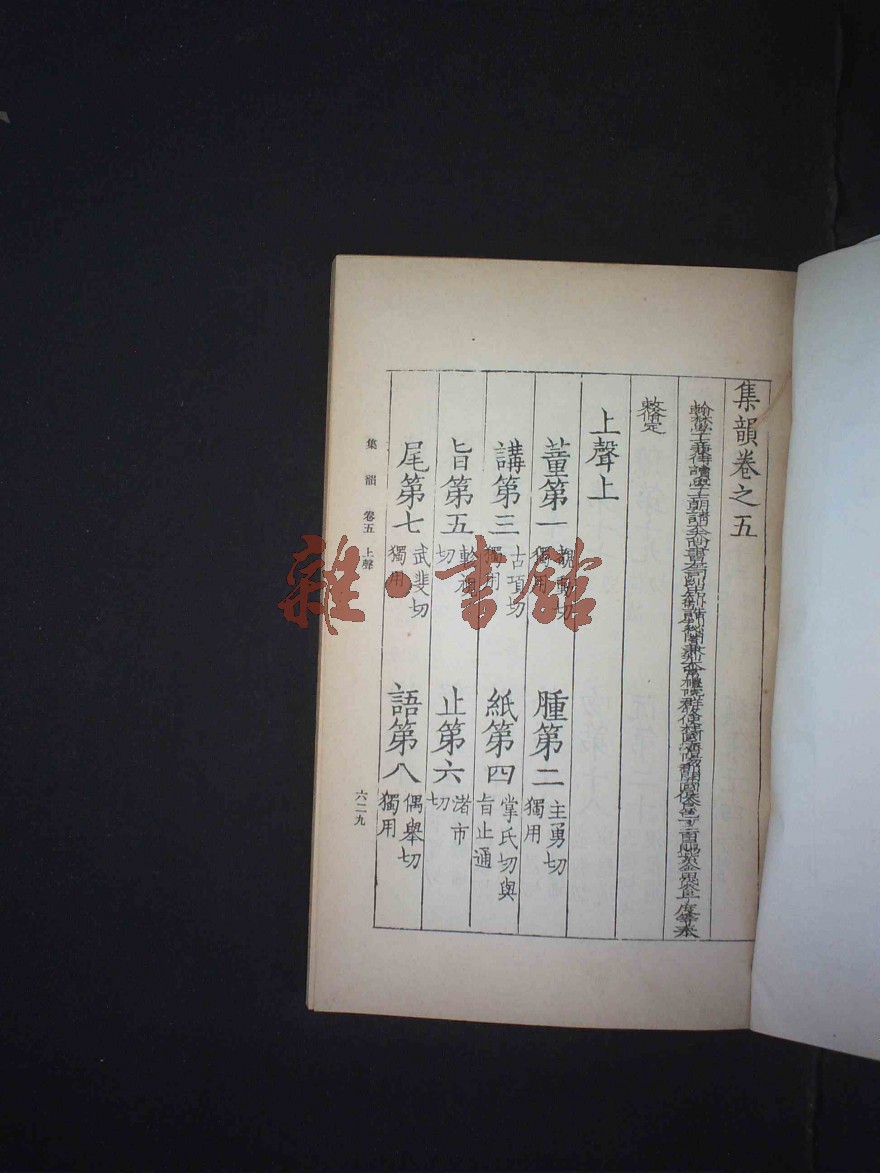 集韻卷之五
翰林學士兼侍讀學士朝請大夫尚書左司郎中知制誥判祕閣兼判太常禮院群牧使柱國濟陽郡開國侯食邑一千三百戶賜紫金魚袋臣丁度等奉
敕脩定
上聲上
董第一 覩動切獨用 腫第二 主勇切獨用
講第三 古項切獨用 紙第四 掌氏切與旨止通
旨第五 軫視切 止第六 渚市切
尾第七 武斐切獨用 語第八 偶舉切獨用
集韻 卷五 上聲
六二九
雜·書館